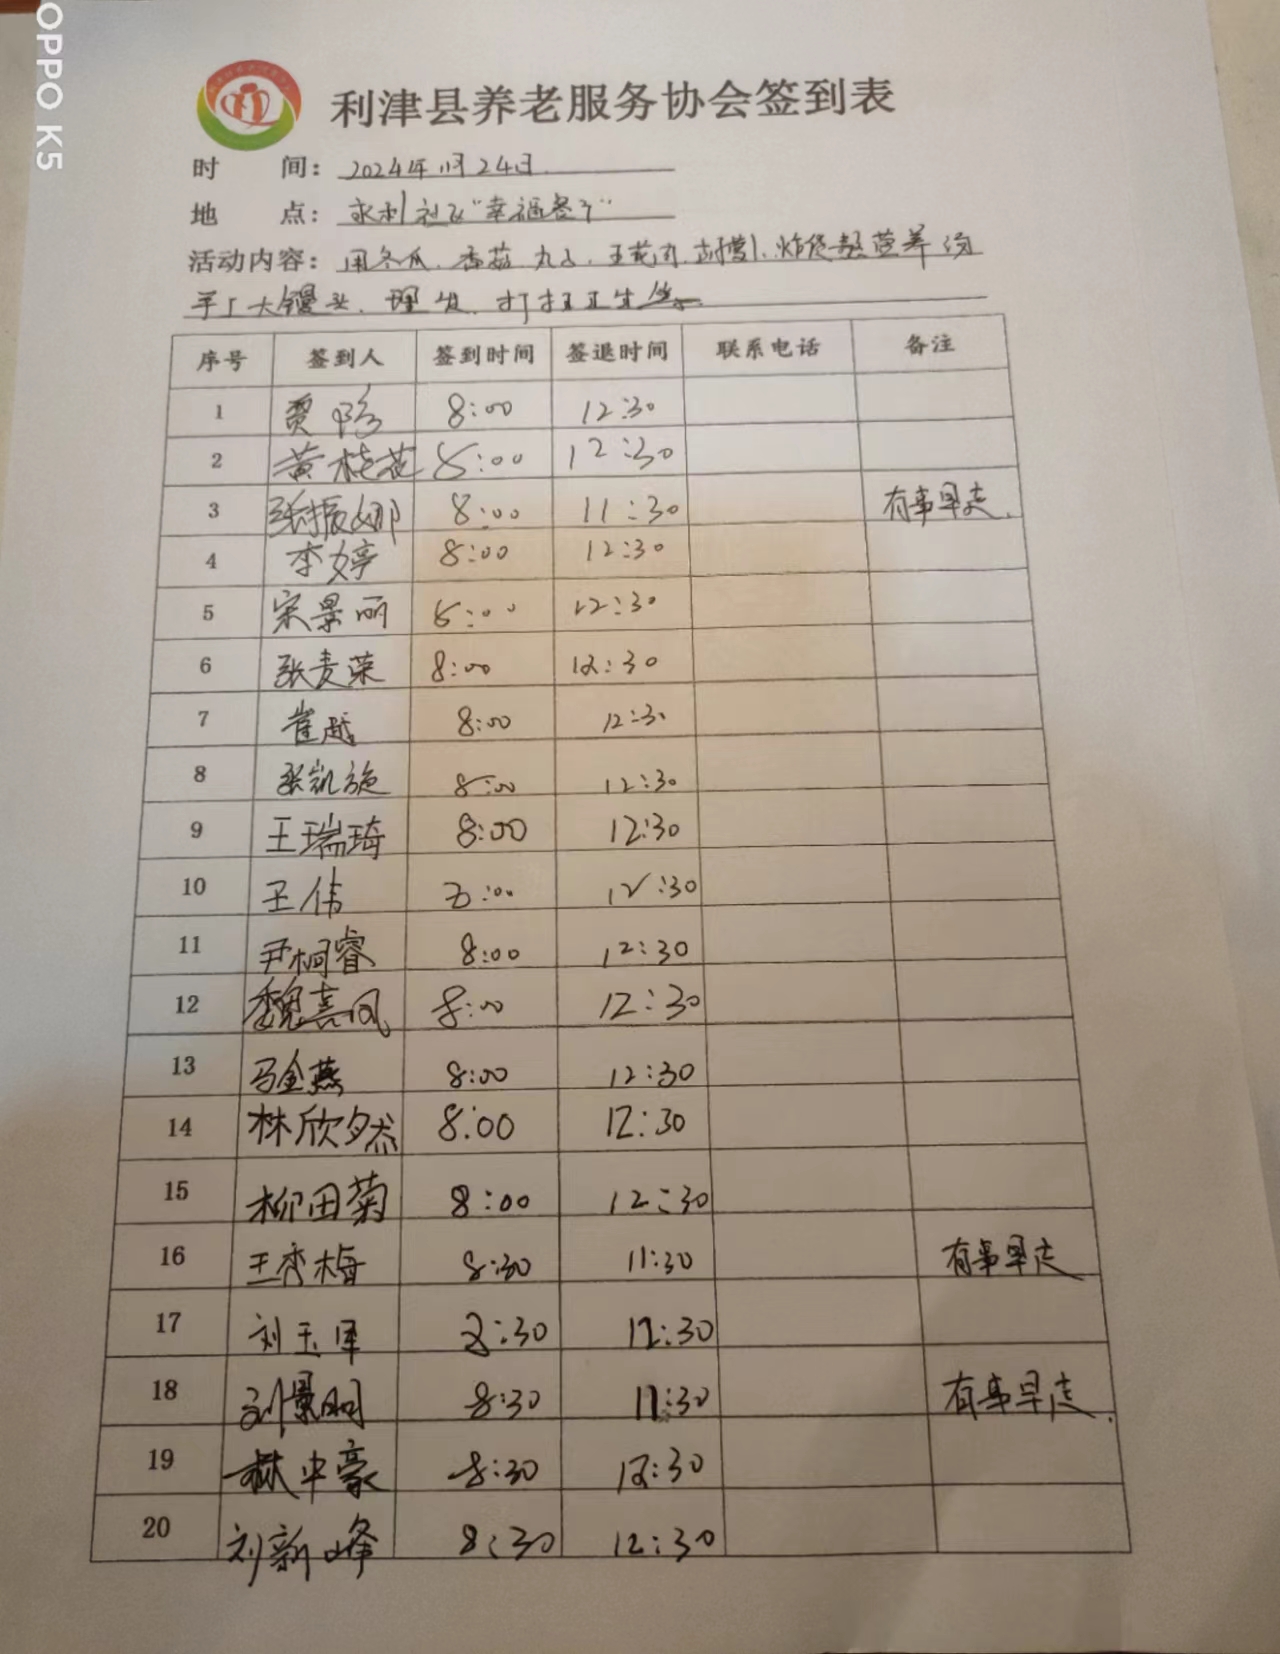 OPPO K5
利津县养老服务协会签到表
时 间：2024年11月24日
地 点：永利社区"幸福餐厅"
活动内容：用冬瓜、香菇、丸子、五花肉、胡萝卜、炸货熬营养汤
手工大馒头、理发、打扫卫生等
序号 签到人 签到时间 签退时间 联系电话 备注
1 贾 8:00 12:30
2 黄桂花 8:00 12:30
3 张振娜 8:00 11:30 有事早走.
4 李婷 8:00 12:30
5 宋景丽 8:00 12:30
6 张麦荣 8:00 12:30
7 崔越 8:00 12:30
8 张凯旋 8:00 12:30
9 王瑞琦 8:00 12:30
10 王伟 8:00 12:30
11 尹桐睿 8:00 12:30
12 魏喜凤 8:00 12:30
13 马金燕 8:00 12:30
14 林欣然 8:00 12:30
15 柳田菊 8:00 12:30
16 王秀梅 8:30 11:30 有事早走
17 刘玉 8:30 12:30
18 刘景明 8:30 11:30 有事早走.
19 林中豪 8:30 12:30
20 刘新峰 8:30 12:30